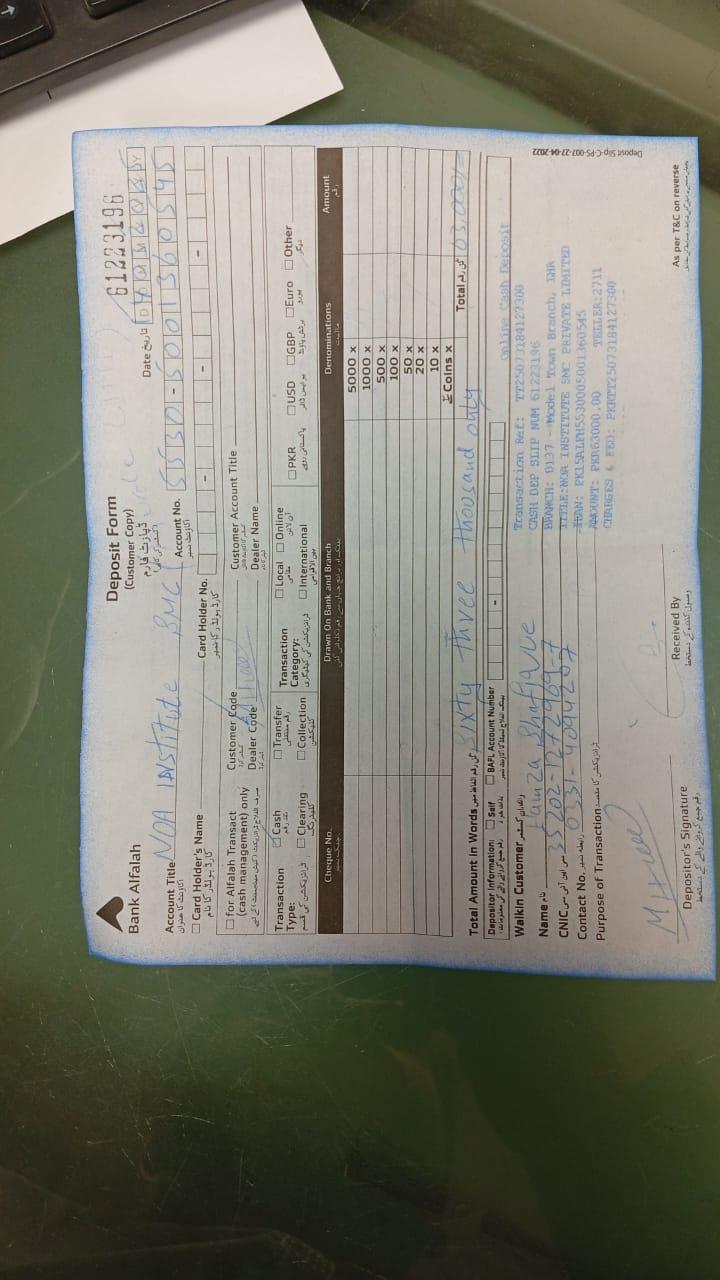 Bank Alfalah
Deposit Form
(Customer Copy)
ڈپازٹ فارم
61223196
Date تاریخ
Account Title NOA INSTITUTE
Account No. 5530-5001360545
Card Holder's Name
Card Holder No.
for Alfalah Transact
(cash management) only
Customer Code
Customer Account Title
Dealer Code
Dealer Name
Transaction Type:
Cash
Transfer
Clearing
Collection
Transaction Category:
Local
Online
International
PKR
USD
GBP
Euro
Other
Cheque No.
Drawn On Bank and Branch
Denominations
Amount
رقم
5000 x
1000 x
500 x
100 x
50 x
20 x
10 x
Coins x
Total Amount In Words Sixty three thousand only
Total 63,000/-
Depositor Information:
Self
BAFL Account Number
Walkin Customer
Name نام Hamza Shafique
CNIC 35202-1272969-7
Contact No. 0331-4094267
Purpose of Transaction
Online Cash Deposit
Transaction Ref: TT25073184127300
CASH DEP SLIP NUM 61223196
BRANCH: 0137 - Model Town Branch, LHR
TITLE:NOA INSTITUTE SMC PRIVATE LIMITED
IBAN: PK15ALFH5530005001360545
AMOUNT: PKR63000.00 TELLER:2711
CHARGES & FED: PKRTT25073184127300
Depositor's Signature
Received By
As per T&C on reverse
Deposit Slip-C-PS-007-27-04-2022